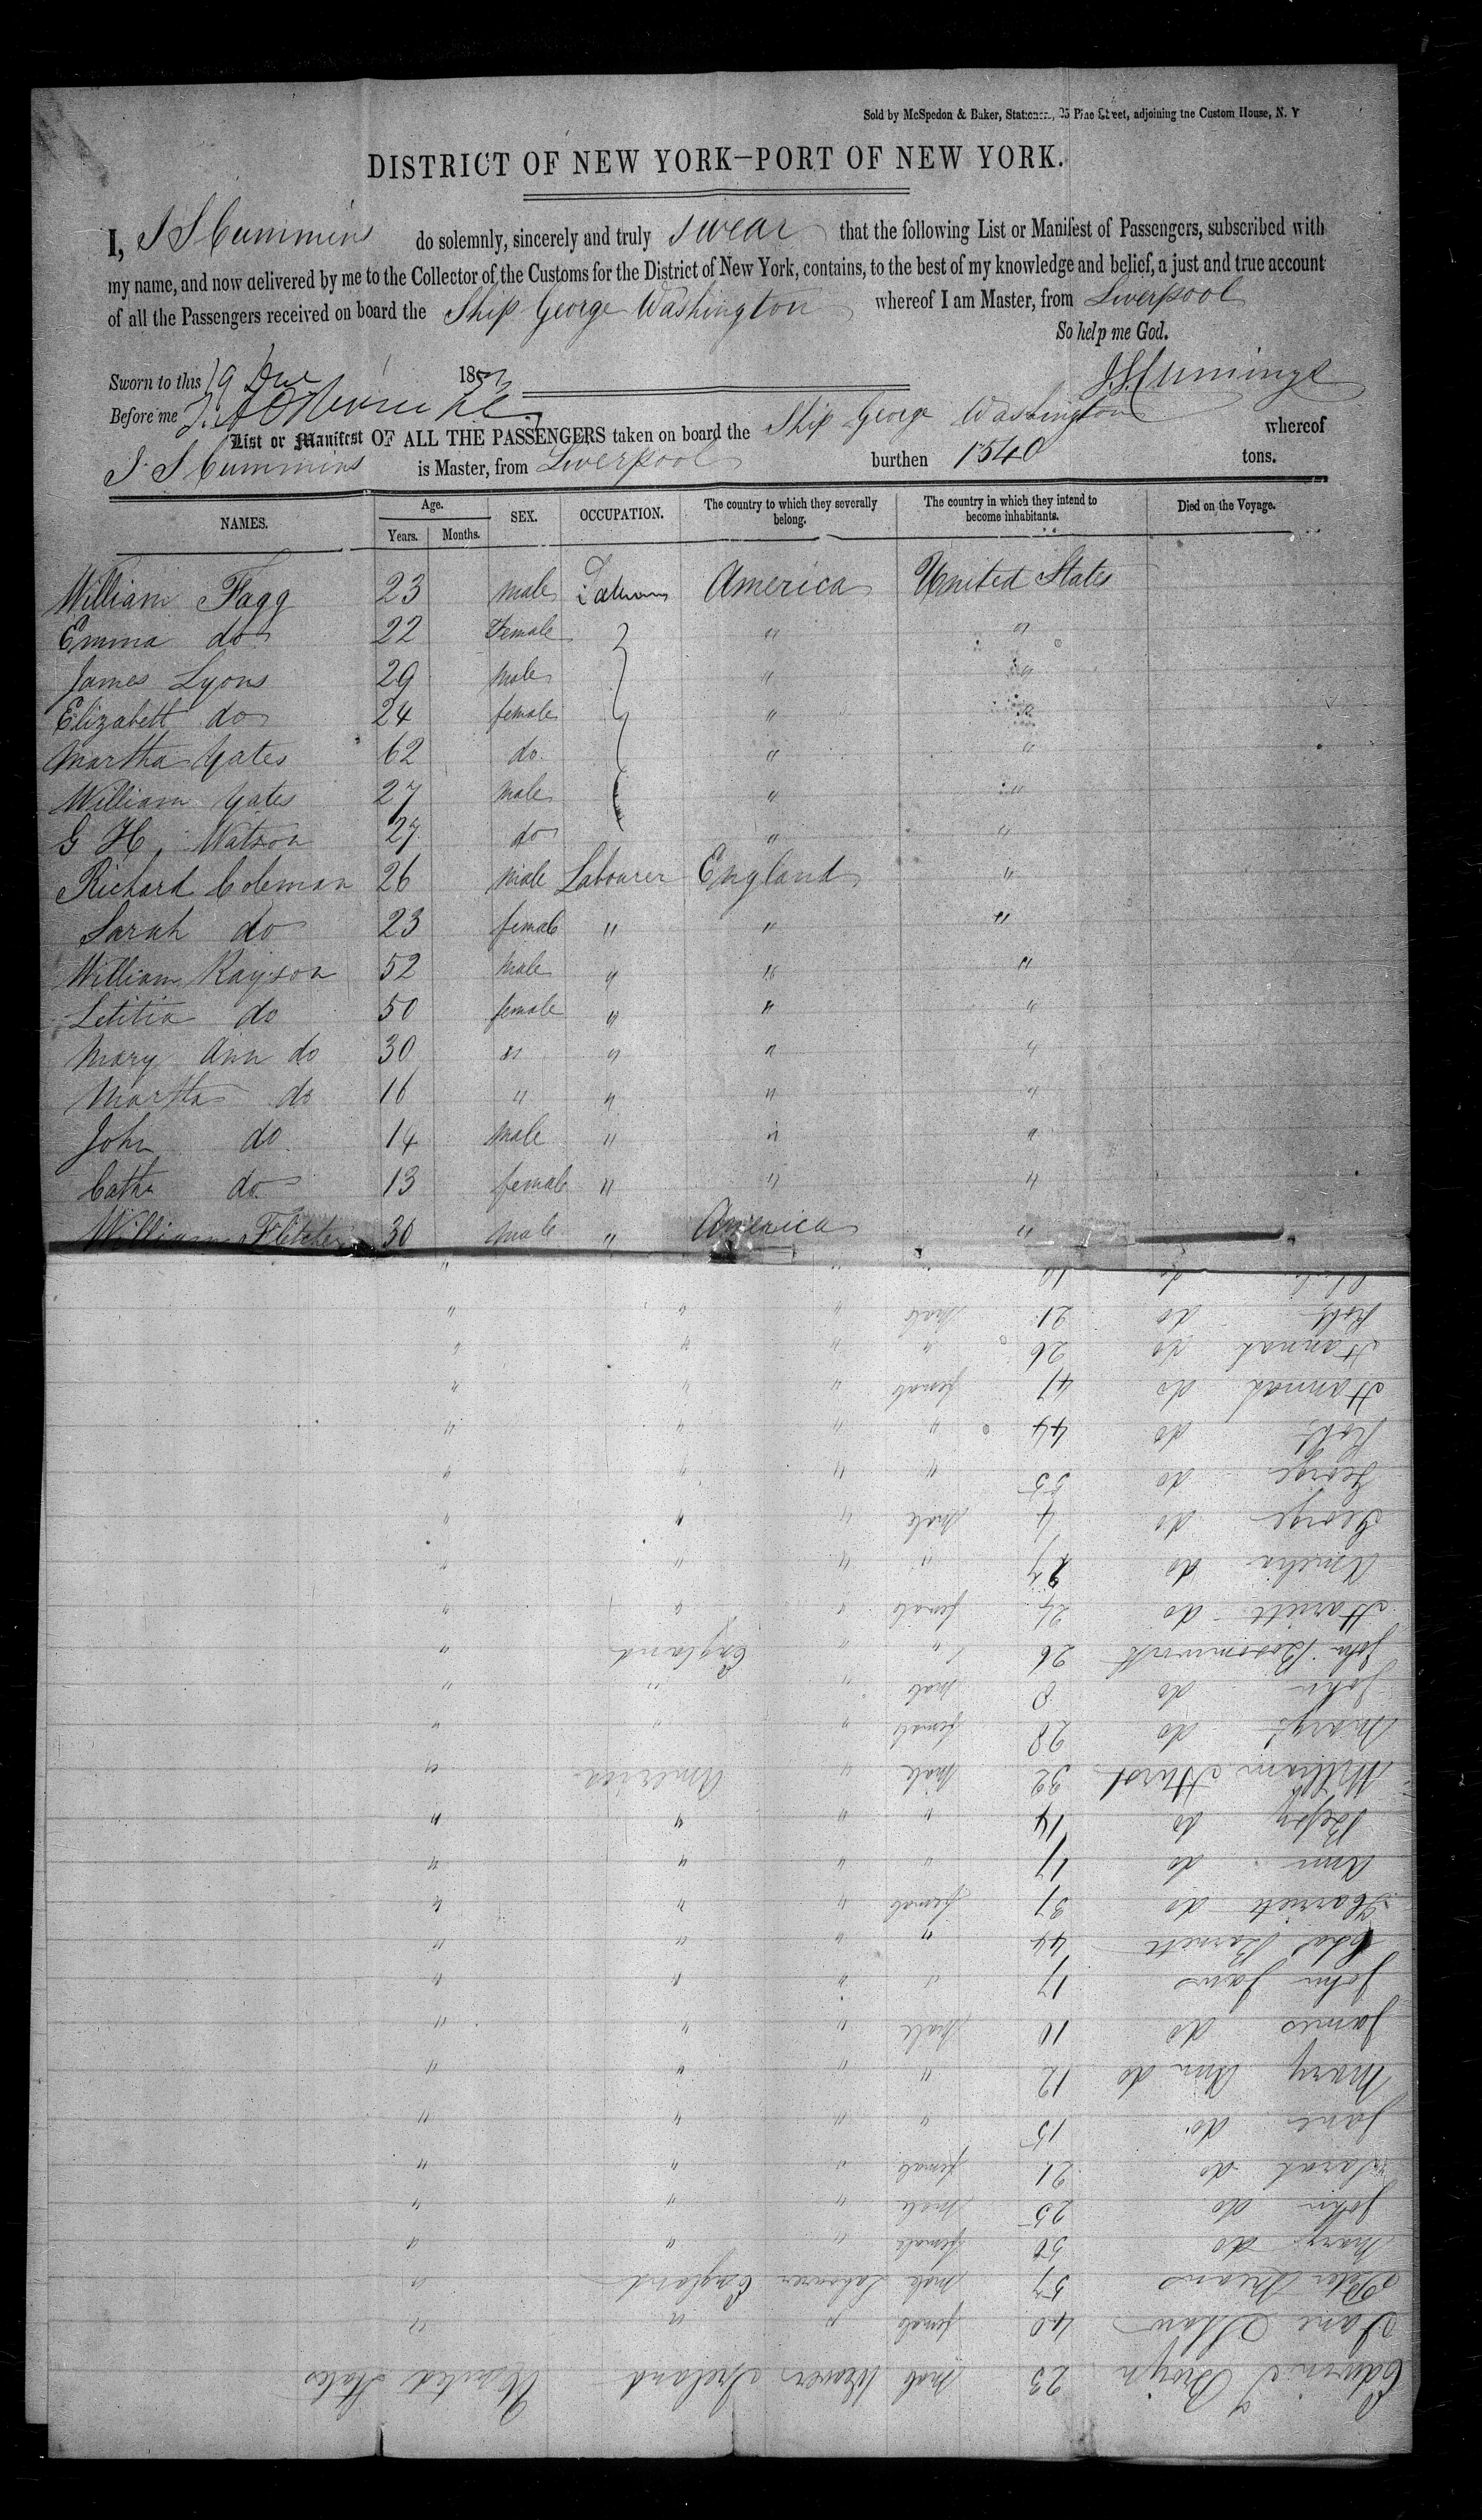 Sold by McSpedon & Baker, Stationers, 25 Pine Street, adjoining the Custom House, N. Y
DISTRICT OF NEW YORK—PORT OF NEW YORK.
I, J S Cummins do solemnly, sincerely and truly swear that the following List or Manifest of Passengers, subscribed with
my name, and now delivered by me to the Collector of the Customs for the District of New York, contains, to the best of my knowledge and belief, a just and true account
of all the Passengers received on board the Ship George Washington whereof I am Master, from Liverpool
So help me God.
Sworn to this 19 1852
J S Cummings
Before me
List or Manifest OF ALL THE PASSENGERS taken on board the Ship George Washington whereof
J. S Cummins is Master, from Liverpool burthen 1540 tons.
NAMES. Age. Years. Months. SEX. OCCUPATION. The country to which they severally belong. The country in which they intend to become inhabitants. Died on the Voyage.
William Fagg 23 male America United States
Emma do 22 Female " "
James Lyons 29 male " "
Elizabeth do 24 female " "
Martha Yates 62 do. " "
William Yates 27 male " "
G H. Watson 27 do " "
Richard Coleman 26 male Labourer England "
Sarah do 23 female " " "
William Rayson 52 male " " "
Letitia do 50 female " " "
Mary Ann do 30 " " " "
Martha do 16 " " " "
John do 14 male " " "
Cathe do 13 female " " "
William Fletcher 30 male " America "
Edwin 23 male Weaver Ireland United States
Jane Shaw 40 female " " "
Peter Means 57 male Labourer England "
Mary do 50 female " " "
John do 25 male " " "
Sarah do 21 female " " "
Jane do 15 " " " "
Mary Ann do 12 " " " "
James do 10 male " " "
John Jaws 17 " " " "
Chas Barnett 44 " " " "
Harriett do 37 female " " "
Ann do 17 " " " "
Betsy do 14 " " " "
William Hurst 32 male " America "
Mary do 28 female " " "
John do 8 male " " "
John 26 " " England "
Harriett do 24 female " " "
Amelia do " " " "
George do 4 male " " "
George do 55 " " " "
Robt do 44 " " " "
Hannah do 41 female " " "
Hannah do 26 " " " "
Robt do 21 male " " "
do 19 " " "